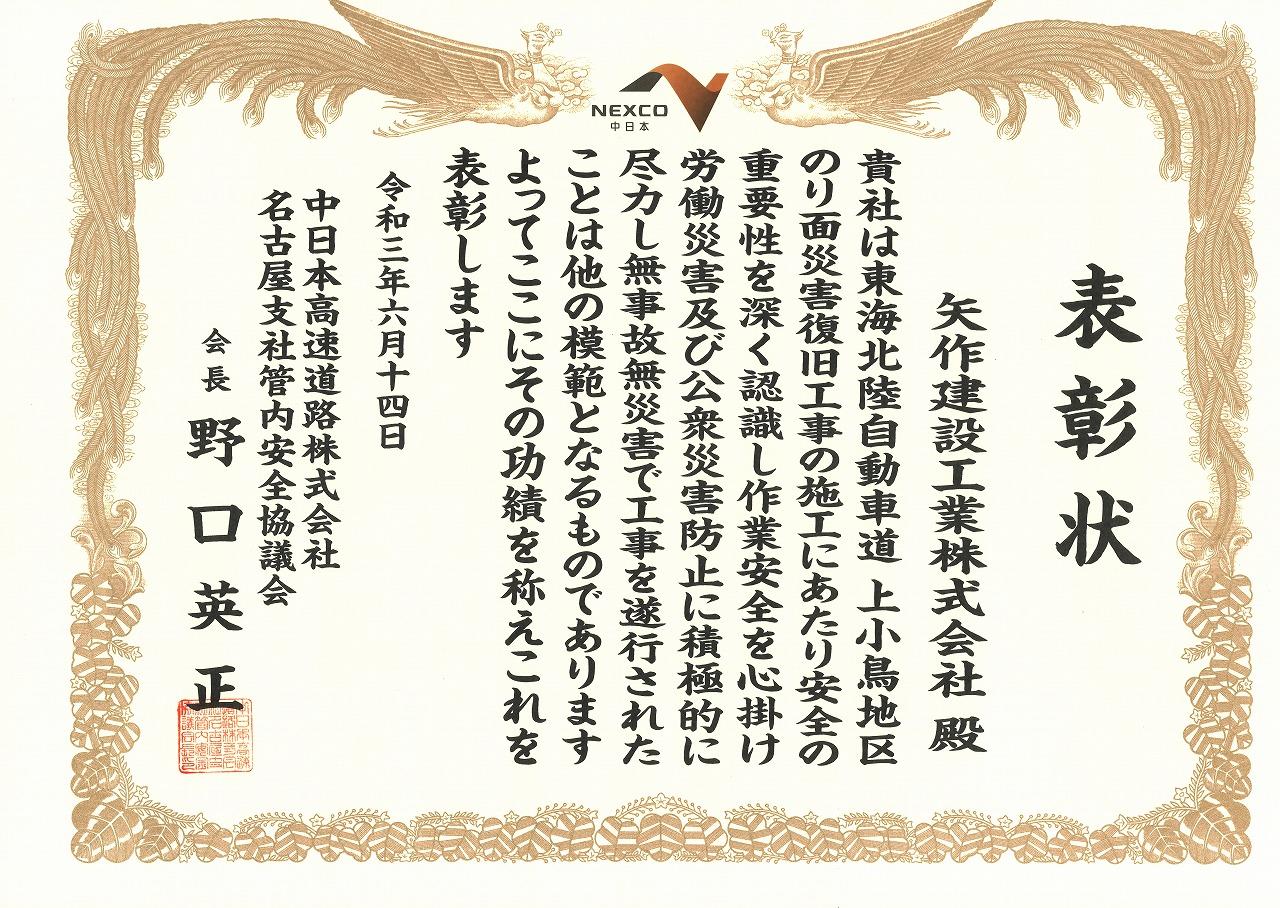 NEXCO
中日本
表彰状
矢作建設工業株式会社 殿
貴社は東海北陸自動車道 上小鳥地区
のり面災害復旧工事の施工にあたり安全の
重要性を深く認識し作業安全を心掛け
労働災害及び公衆災害防止に積極的に
尽力し無事故無災害で工事を遂行された
ことは他の模範となるものであります
よってここにその功績を称えこれを
表彰します
令和三年六月十四日
中日本高速道路株式会社
名古屋支社管内安全協議会
会長 野口英正